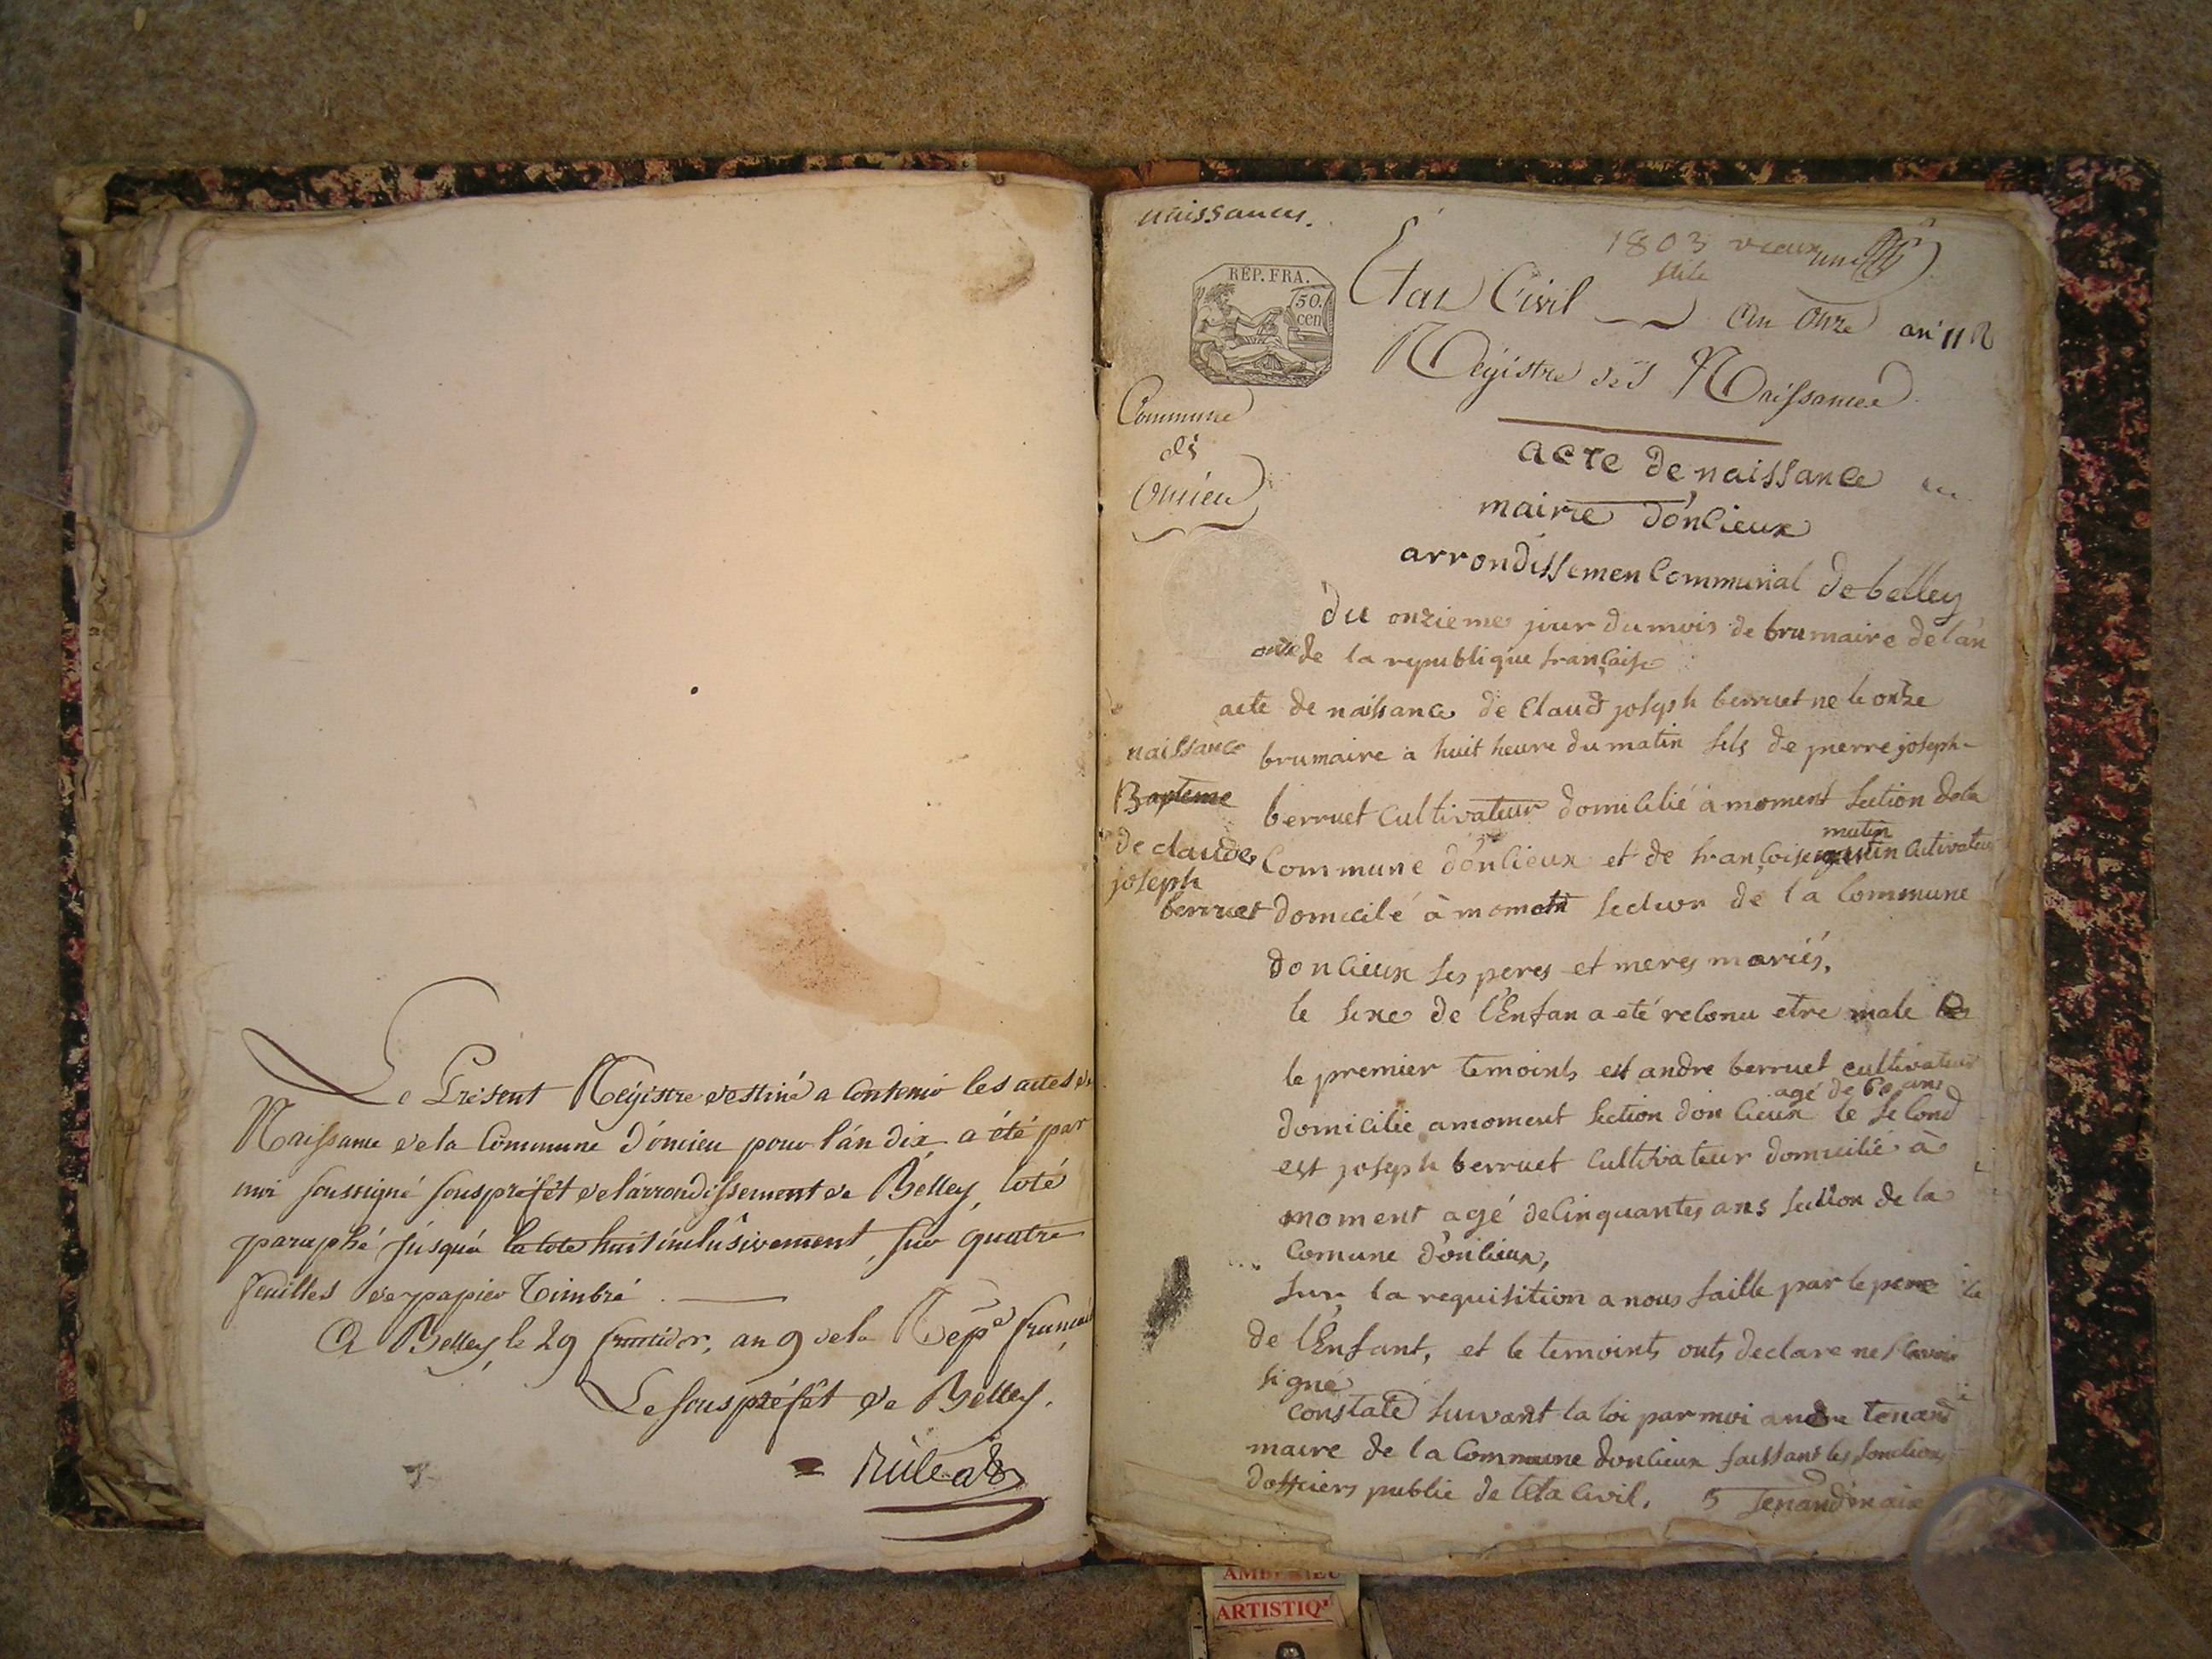 Le Présent Régistre destiné a Contenir les actes de
Naissance de la Commune d'oncieu pour l'an dix a été par
moi soussigné souspréfét de l'arrondissement de Bélley, coté
paraphé jusqu'a la cote huit inclusivement, sur quatre
feuilles de papier Timbré
A Belley, le 29 fructidor, an 9 de la Rép.e français
Le souspréfét de Bélley.
naissances.
1803 vieux
stile
une
RÉP. FRA.
50.
cen
Etat Civil
An Onze an 11
Régistre des Naissances
Commune
de
Oncieu
acte de naissance
mairie d'onlieux
arrondissemen Communal de belley
du onzieme jour du mois de brumaire de l'an
onze de la republique française
acte de naissance de Claud joseph berruet ne le onze
naissance
brumaire a huit heure du matin fils de pierre joseph
Bapteme
de claude
joseph
berruet
berruet Cultivateur domicilié a moment section de la
mutin
Commune d'onlieux et de françoise
domicilé à moment section de la Commune
donlieux ses peres et meres mariés,
le sexe de l'Enfan a eté reconu etre male
le premier temoints est andre berruet cultivateur
agé de 60 ans
domicilie a moment section donlieux le second
est joseph berruet Cultivateur domicilié à
moment agé de Cinquantes ans section de la
Comune d'onlieux,
sur la requisition a nous faille par le pere
de l'Enfant, et le temoints onts declare ne scavoir
signe
constaté suivant la loi par moi andre tenand
maire de la Commune donlieux faissant les fonctions
dofficiers public de leta Civil. tenand maire
ARTISTIQ